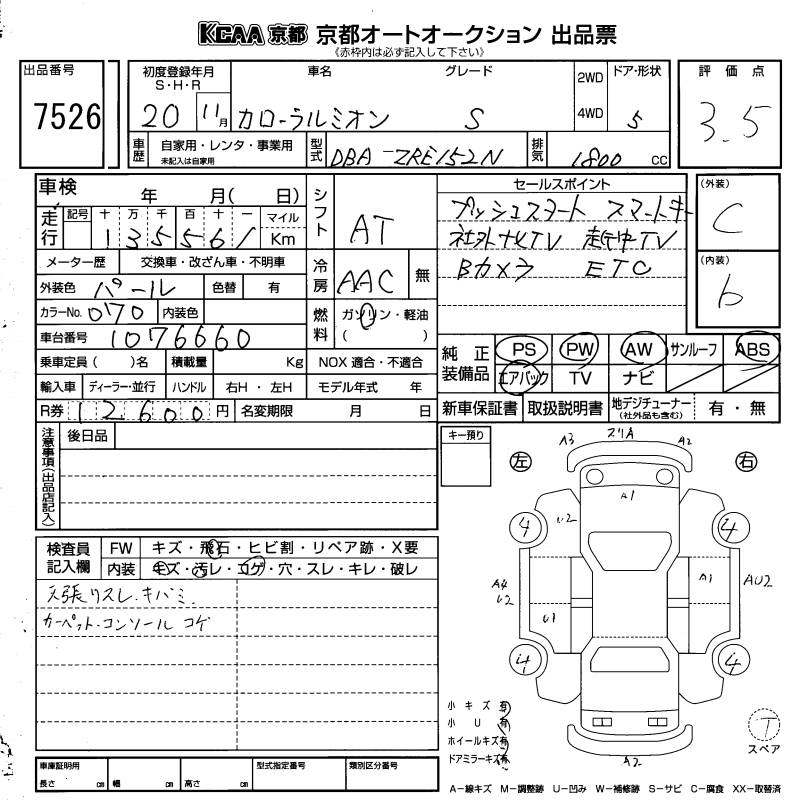 KCAA 京都 京都オートオークション 出品票
《赤枠内は必ず記入して下さい》
出品番号
7526
初度登録年月
S・H・R
20 11月
車名 グレード
カローラルミオン S
2WD
4WD
ドア・形状
5
評価点
3.5
車歴 自家用・レンタ・事業用
未記入は自家用
型式 DBA-ZRE152N
排気 1800 cc
車検 年 月( 日)
シフト AT
セールスポイント
プッシュスタート スマートキー
社外ナビTV 走行中TV
Bカメラ ETC
(外装)
C
(内装)
b
走行 記号 十 万 千 百 十 一 マイル
135561 Km
メーター歴 交換車・改ざん車・不明車
冷房 AAC 無
外装色 パール 色替 有
カラーNo. 070 内装色
燃料 ガソリン・軽油
( )
車台番号 1076660
乗車定員 ( )名 積載量 Kg NOX 適合・不適合
輸入車 ディーラー・並行 ハンドル 右H・左H モデル年式 年
R券 12600 円 名変期限 月 日
純正装備品 PS PW AW サンルーフ ABS
エアバック TV ナビ
新車保証書 取扱説明書 地デジチューナー
(社外品も含む) 有・無
注意事項(出品店記入)
後日品
キー預り
左 右
A3 スリA A2
A1
U2
4 4
A4
U2
A1
AU2
U1
4 4
A2
検査員記入欄 FW キズ・飛石・ヒビ割・リペア跡・X要
内装 キズ・汚レ・コゲ・穴・スレ・キレ・破レ
天張りスレ.キバミ.
カーペット.コンソール コゲ
小キズ有
小U有
ホイールキズ有
ドアミラーキズ有
T
スペア
車庫証明用 型式指定番号 類別区分番号
長さ cm 幅 cm 高さ cm
A−線キズ M−調整跡 U−凹み W−補修跡 S−サビ C−腐食 XX−取替済